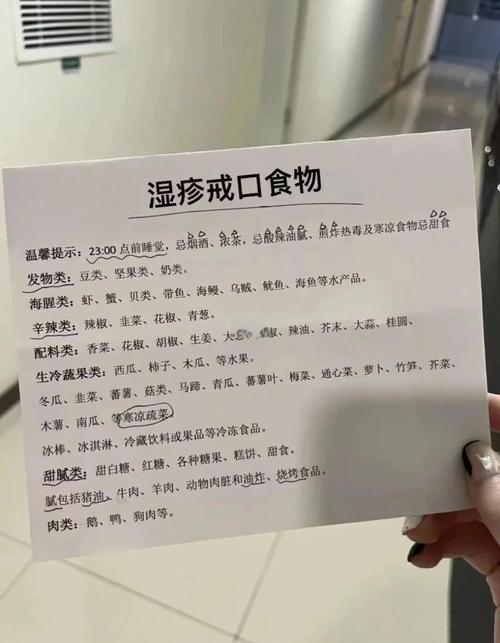 湿疹戒口食物
温馨提示：23:00 点前睡觉，忌烟酒、浓茶，忌酸辣油腻、煎炸热毒及寒凉食物忌甜食
发物类：豆类、坚果类、奶类。
海腥类：虾、蟹、贝类、带鱼、海鳗、乌贼、鱿鱼、海鱼等水产品。
辛辣类：辣椒、韭菜、花椒、青葱。
配料类：香菜、花椒、胡椒、生姜、大 椒、辣油、芥末、大蒜、桂圆、
生冷蔬果类：西瓜、柿子、木瓜、等水果。
冬瓜、韭菜、蕃薯、菇类、马蹄、青瓜、蕃薯叶、梅菜、通心菜、萝卜、竹笋、芥菜、
木薯、南瓜、等寒凉疏菜。
冰棒、冰淇淋、冷藏饮料或果品等冷冻食品。
甜腻类：甜白糖、红糖、各种糖果、糕饼、甜食。
腻包括猪油、牛肉、羊肉、动物肉脏和油炸、烧烤食品。
肉类：鹅、鸭、狗肉等。